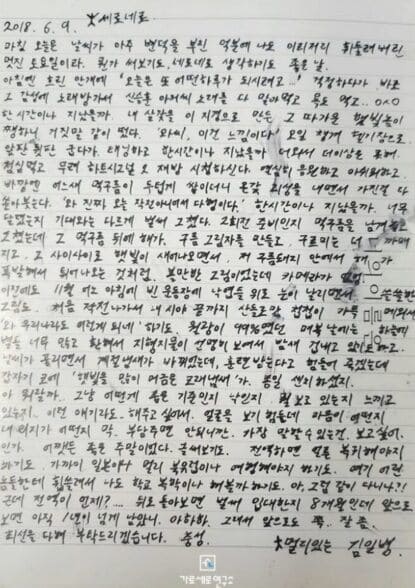 2018. 6. 9. 大세로네로
마침 오늘은 날씨가 아주 변덕을 부린 덕분에 나도 이리저리 휘둘려버린
멋진 토요일이라. 뭔가 써보기도, 네로네로 생각하기도 좋은 날.
아침엔 흐린 안개에 '오늘은 또 어떤하루가 되시려고...' 걱정하다가 바로
그 감성에 노래방가서 신승훈 아저씨 노래를 다 말아먹고 욕도 먹고... o^o
한시간이나 지났을까. 내 살갗을 이 지경으로 만든 그 따가운 햇빛놀이
쨍하니 거짓말 같이 떴다. '와씨, 이건 느낌이다' 오일 챙겨 헬기장으로
앞장 뒷단 굽다가 태닝하고 한시간이나 지났을까 더워서 더이상은 못해.
점심먹고 무려 하트시그널 2 재방 시청하신다. 열심히 응원하고 아쉬워하고.
바깥엔 어느새 먹구름이 두텁게 쌓이더니 온갖 괴성을 내면서 가진걸 다
쏟아붓는다. '와 진짜 오늘 작전아니어서 다행이다.' 한시간이나 지났을까. 너무
단편인지 기대와는 다르게 벌써 그쳤다. 2회전 준비인지 먹구름을 남겨놓고
그쳤는데 그 먹구름 뒤에 해가. 구름 그림자를 만들고, 구르미는 더 까매
지고, 그 사이사이로 햇빛이 새어나오면서, 저 구름돼지 안에서 해가
폭발해서 튀어나오는 것처럼. 봄만반 그림이었는데 카메라가 없네
이전에도 11월 어느 아침에 빈 운동장에 낙엽들 위로 눈이 날리면서 쓸쓸한
그림도. 처음 작전나가서 내 시야 끝까지 산등으로 첩첩이 가득 메워서
'와 우리나라도 이렇게 되네' 하기도. 월광이 99%였던 매복날에는 하늘에
별들 너무 많고 환해서 지평지물이 선명히 보여서 밤새 겁내고 있기도 하고.
날씨가 풀리면서 계절냄새가 바뀌었는데, 훈련 받는다고 힘들어 죽겠는데
갑자기 코에 '햇빛을 많이 머금은 모래냄새'가. 봄일 센치하셨지.
아 뭐랄까... 그냥 어떻게 좋은 기준인지 낙인지 뭘 보고 있는지 느끼고
있는지.. 이런 얘기라도.. 해주고 싶어서. 얼굴을 보기 힘든데 마음이 어떤지
내 의지가 어떤지 막.. 부담주면 안되니까.. 가장 말할수있는건. 보고싶어.
인가. 어쨌든 좋은 주말이었다. 글써보기도. 전역하면 얼른 복귀해야지
하기도. 가까이 일본이나 멀리 북유럽이나 여행해야지 하기도. 여기 어린
놈들한테 휩쓸려서 나도 학교 복학이나 해볼까 하기도. 아, 그럼 같이 다니나?!
근데 전역이 언제?.... 뒤로 돌아보면 벌써 입대한지 8개월인데 앞으로
보면 아직 1년이 넘게 남았니. 아하하. 그래서 앞으로도 쭉.. 잘 좀..
최선을 다해 부탁드리겠습니다. 충성.
大멀티있는 김일병.
가로세로연구소